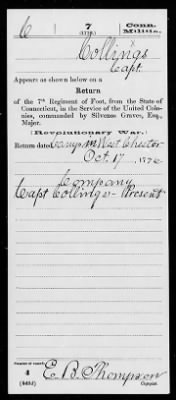 C 7 Conn.
(1776.) Militia.
Collings
Capt.
Appears as shown below on a
Return
of the 7th Regiment of Foot, from the State of
Connecticut, in the Service of the United Colo-
nies, commanded by Silvenos Graves, Esq.,
Major.
(Revolutionary War.)
Return dated Camp in West Chester
Oct. 17, 1776
Company
Capt Collings - Present
Number of record:
4
E. B. Thompson
Copyist.